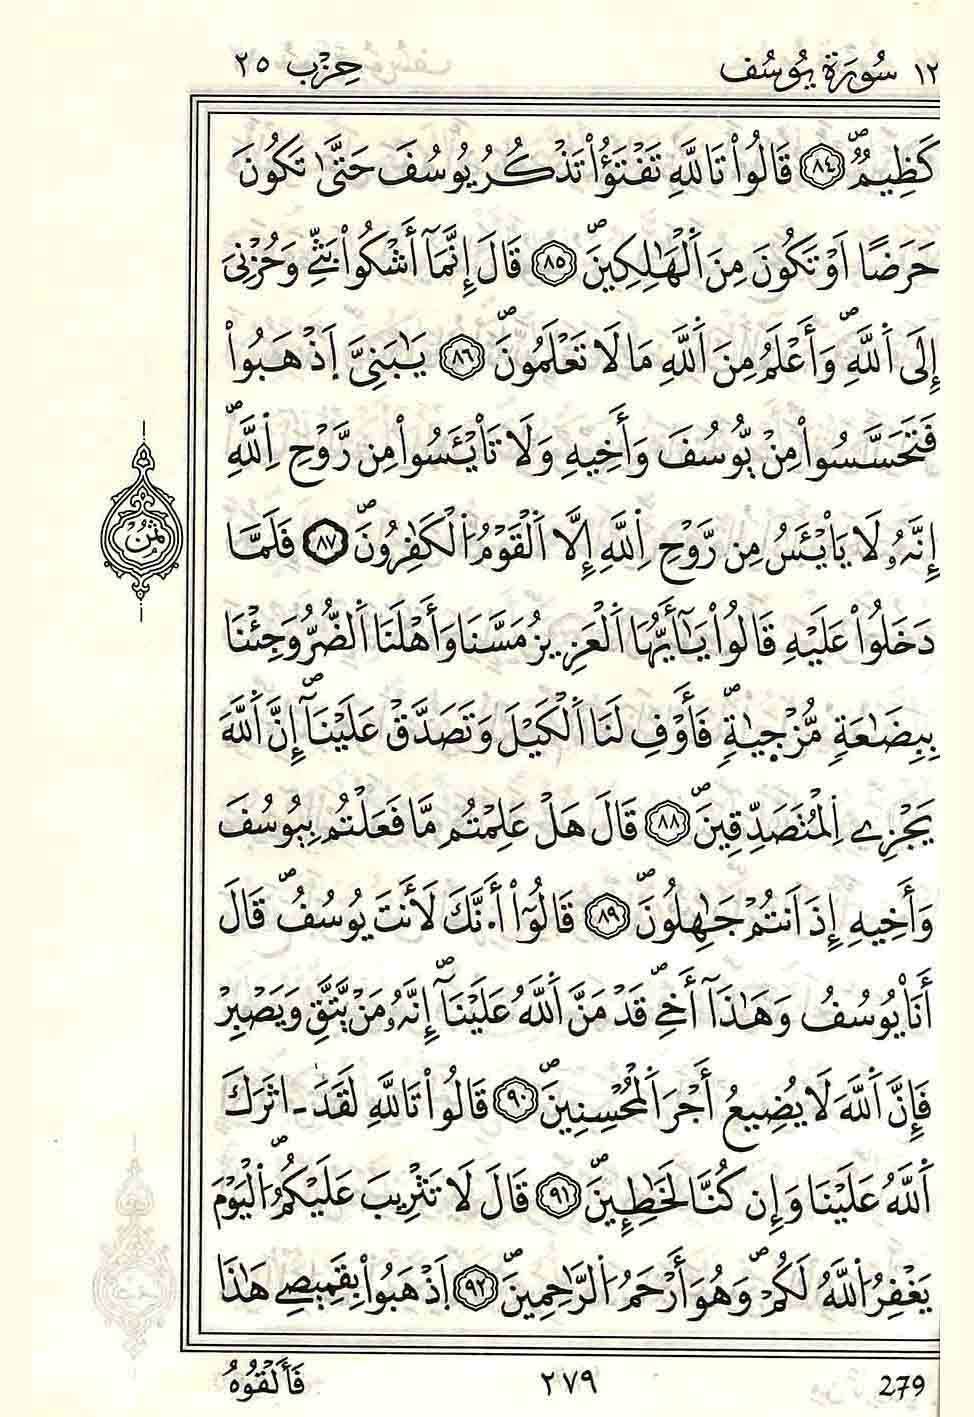 ١٢ سُورَة يُوسُف حِزْب ٢٥
كَظِيمٌ ٨٤ قَالُواْ تَاللَّهِ تَفْتَؤُاْ تَذْكُرُ يُوسُفَ حَتَّىٰ تَكُونَ
حَرَضًا اَوْ تَكُونَ مِنَ اَلْهَٰلِكِينَ ٨٥ قَالَ إِنَّمَآ أَشْكُواْ بَثِّے وَحُزْنِىَ
إِلَى اَللَّهِ وَأَعْلَمُ مِنَ اَللَّهِ مَا لَا تَعْلَمُونَ ٨٦ يَٰبَنِىَّ اَذْهَبُواْ
فَتَحَسَّسُواْ مِنْ يُّوسُفَ وَأَخِيهِ وَلَا تَاْيْـَٔسُواْ مِن رَّوْحِ اِللَّهِ
إِنَّهُۥ لَا يَاْيْـَٔسُ مِن رَّوْحِ اِللَّهِ إِلَّا اَلْقَوْمُ اُلْكَٰفِرُونَ ٨٧ فَلَمَّا
ثُمُن
دَخَلُواْ عَلَيْهِ قَالُواْ يَٰٓأَيُّهَا اَلْعَزِيزُ مَسَّنَا وَأَهْلَنَا اَلضُّرُّ وَجِئْنَا
بِبِضَٰعَةٍ مُّزْجَىٰةٍ فَأَوْفِ لَنَا اَلْكَيْلَ وَتَصَدَّقْ عَلَيْنَآ إِنَّ اَللَّهَ
يَجْزِے اِلْمُتَصَدِّقِينَ ٨٨ قَالَ هَلْ عَلِمْتُم مَّا فَعَلْتُم بِيُوسُفَ
وَأَخِيهِ إِذَ اَنتُمْ جَٰهِلُونَ ٨٩ قَالُوٓاْ أَ.نَّكَ لَأَنتَ يُوسُفُ قَالَ
أَنَاْ يُوسُفُ وَهَٰذَآ أَخِے قَدْ مَنَّ اَللَّهُ عَلَيْنَآ إِنَّهُۥ مَنْ يَّتَّقِ وَيَصْبِرْ
فَإِنَّ اَللَّهَ لَا يُضِيعُ أَجْرَ اَلْمُحْسِنِينَ ٩٠ قَالُواْ تَاللَّهِ لَقَدَ ـ اثَرَكَ
اَللَّهُ عَلَيْنَا وَإِن كُنَّا لَخَٰطِـِٕينَ ٩١ قَالَ لَا تَثْرِيبَ عَلَيْكُمُ اُلْيَوْمَ
يَغْفِرُ اُللَّهُ لَكُمْ وَهُوَ أَرْحَمُ اُلرَّٰحِمِينَ ٩٢ اَذْهَبُواْ بِقَمِيصِے هَٰذَا
فَأَلْقُوهُ ٢٧٩ 279